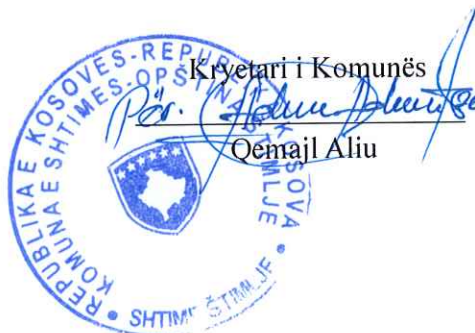 Kryetari i Komunës
Për.
Qemajl Aliu
REPUBLIKA E KOSOVËS-REPUB
KOSOVA
KOMUNA E SHTIMES-OPŠTINA
SHTIME ŠTIMLJE